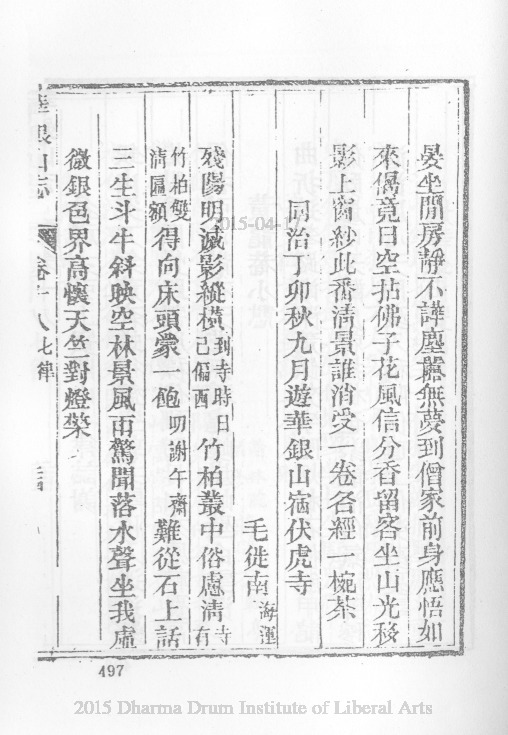 晏坐閒房靜不譁塵囂無夢到僧家前身應悟如
來偈竟日空拈佛子花風信分香留客坐山光移
影上窗紗此番清景誰消受一卷名經一椀茶
同治丁卯秋九月遊華銀山宿伏虎寺
毛徙南海運
殘陽明滅影縱橫到寺時日已偏西竹柏叢中俗慮清寺有
竹柏雙清匾額得向床頭蒙一飽叨謝午齋難從石上話
三生斗牛斜映空林景風雨驚聞落水聲坐我虛
微銀色界高懷天竺對燈檠
華銀山志
卷十八
七律
497
2015-04-
2015 Dharma Drum Institute of Liberal Arts